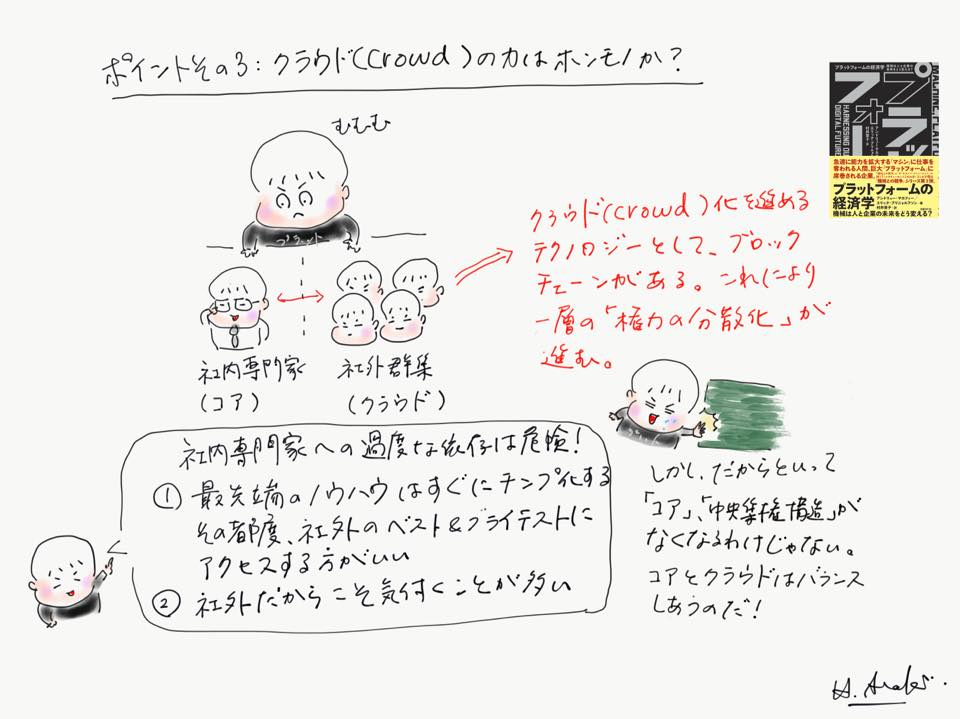 ポイントその3：クラウド(Crowd)の力はホンモノか？
むむ〜む
プラット
社内専門家
(コア)
社外群集
(クラウド)
クラウド(crowd)化を進める
テクノロジーとして、ブロック
チェーンがある。これにより
一層の「権力の分散化」が
進む。
社内専門家への過度な依存は危険！
① 最先端のノウハウはすぐにチンプ化する
その都度、社外のベスト&ブライテストに
アクセスする方がいい
② 社外だからこそ気付くことが多い
しかし、だからといって
「コア」、「中央集権構造」が
なくなるわけじゃない。
コアとクラウドはバランス
しあうのだ！
プラットフォームの経済学
プラットフォー
MACHINE PLATF
HARNESSING OU
DIGITAL FUTURE
急速に能力を拡大する「マシン」に仕事を
奪われる人間、巨大「プラットフォーム」に
席巻される企業。
プラットフォームの
経済学
アンドリュー・マカフィー
エリック・ブリニョルフソン
機械は人と企業の未来をどう変える？